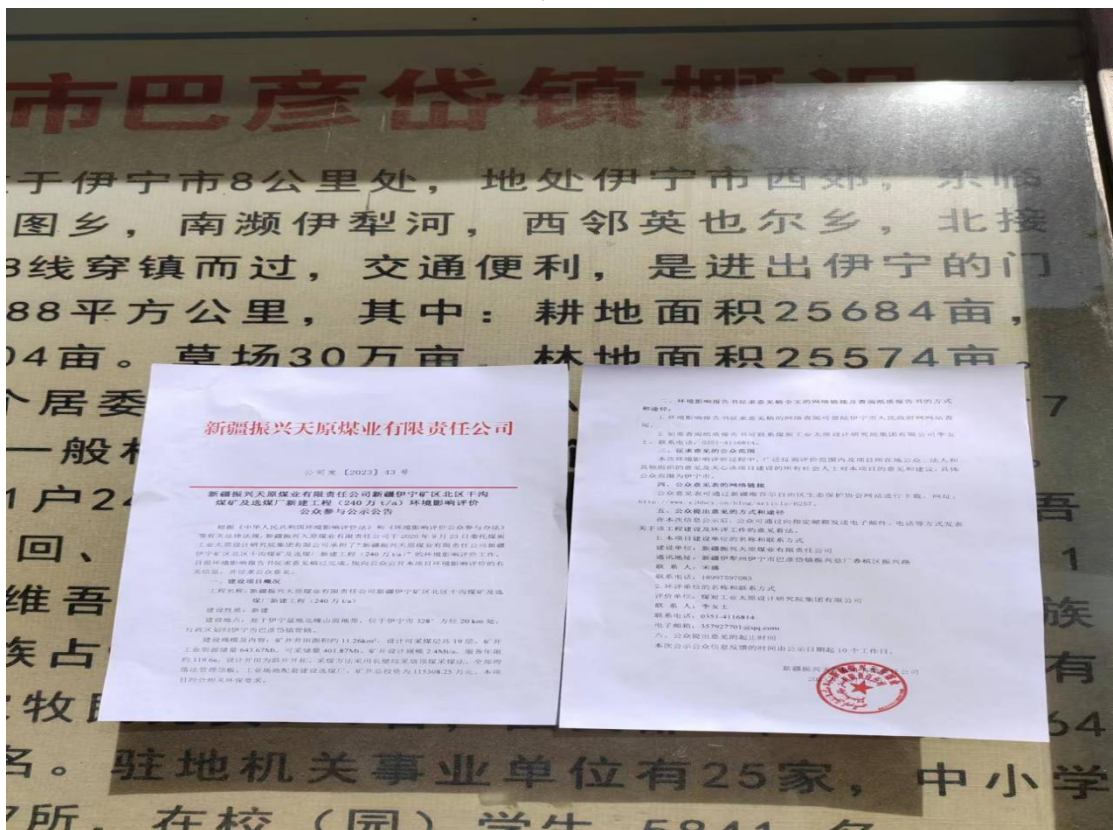 市巴彦岱镇概况
于伊宁市8公里处，地处伊宁市西郊，东临
图乡，南濒伊犁河，西邻英也尔乡，北接
线穿镇而过，交通便利，是进出伊宁的门
88平方公里，其中：耕地面积25684亩，
04亩。草场30万亩，林地面积25574亩。
个居委
7
一般
1户2
吾
回、
1
维吾
族
族占
有
牧民
64
名。驻地机关事业单位有25家，中小学
所，在校（园）学生 5841 名
新疆振兴天原煤业有限责任公司
公司发【2023】43 号
新疆振兴天原煤业有限责任公司新疆伊宁矿区北区干沟
煤矿及选煤厂新建工程（240 万 t/a）环境影响评价
公众参与公示公告
根据《中华人民共和国环境影响评价法》和《环境影响评价公众参与办法》
等有关法律法规，新疆振兴天原煤业有限责任公司于 2020 年 9 月 23 日委托煤炭
工业太原设计研究院集团有限公司承担了“新疆振兴天原煤业有限责任公司新疆
伊宁矿区北区干沟煤矿及选煤厂新建工程（240 万 t/a）”的环境影响评价工作。
目前环境影响报告书征求意见稿已完成，现向公众公开本项目环境影响评价的有
关信息，并征求公众意见。
一、建设项目概况
工程名称：新疆振兴天原煤业有限责任公司新疆伊宁矿区北区干沟煤矿及选
煤厂新建工程（240 万 t/a）
建设性质：新建
建设地点：位于伊宁市 328°方位 20km 处，
行政区划归伊宁市巴彦岱镇管辖。
建设规模及内容：矿井井田面积约 11.26km²，设计可采煤层共 19 层，矿井
工业资源储量 643.67Mt，可采储量 401.87Mt，矿井设计规模 2.4Mt/a，服务年限
约 119.6a。
工业场地配套建设选煤厂，矿井总投资为 115308.25 万元。本项
目符合相关环保要求。
二、环境影响报告书征求意见稿全文的网络链接及查阅纸质报告书的方式
和途径：
1.环境影响报告书征求意见稿的网络查阅可登陆伊宁市人民政府网网站查
阅。
2.如需查阅纸质报告书可联系煤炭工业太原设计研究院集团有限公司李女
士，联系电话：0351-4116814。
三、征求意见的公众范围
本次环境影响评价过程中，广泛征询评价范围内及项目所在地公众、法人和
其他组织的意见及关心该项目建设的所有社会人士对本项目的意见和建议，具体
公众范围为伊宁市。
四、公众意见表的网络链接
公众意见表可通过新疆维吾尔自治区生态保护协会网站进行下载，网址：
五、公众提出意见的方式和途径
在本次信息公示后，公众可通过向指定邮箱发送电子邮件、电话等方式发表
关于该工程建设及环评工作的意见看法。
1.本项目建设单位的名称和联系方式
建设单位：新疆振兴天原煤业有限责任公司
通讯地址：新疆伊犁州伊宁市巴彦岱镇振兴总厂香槟区振兴路
联 系 人：宋盛
联系电话：18097597083
2.环评单位的名称和联系方式
评价单位：煤炭工业太原设计研究院集团有限公司
联 系 人：李女士
联系电话：0351-4116814
电子邮箱：357927701@qq.com
六、公众提出意见的起止时间
本次公示公众信息反馈的时间由公示日期起 10 个工作日。
新疆振兴
公司